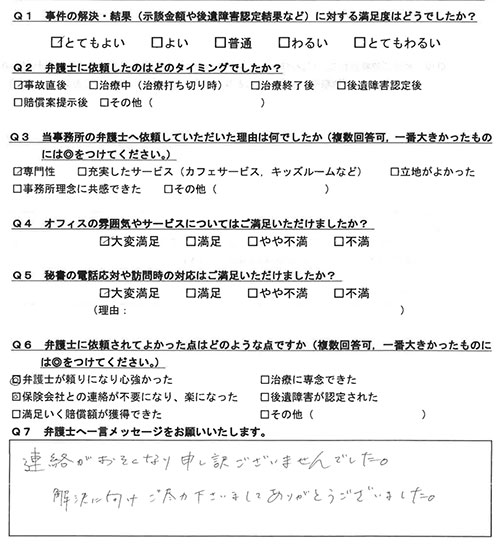 Q1 事件の解決・結果（示談金額や後遺障害認定結果など）に対する満足度はどうでしたか？
☑とてもよい □よい □普通 □わるい □とてもわるい
Q2 弁護士に依頼したのはどのタイミングでしたか？
☑事故直後 □治療中（治療打ち切り時） □治療終了後 □後遺障害認定後
□賠償案提示後 □その他（ ）
Q3 当事務所の弁護士へ依頼していただいた理由は何でしたか（複数回答可，一番大きかったもの
には◎をつけてください。）
☑専門性 □充実したサービス（カフェサービス，キッズルームなど） □立地がよかった
□事務所理念に共感できた □その他（ ）
Q4 オフィスの雰囲気やサービスについてはご満足いただけましたか？
☑大変満足 □満足 □やや不満 □不満
Q5 秘書の電話応対や訪問時の対応はご満足いただけましたか？
☑大変満足 □満足 □やや不満 □不満
（理由： ）
Q6 弁護士に依頼されてよかった点はどのような点ですか（複数回答可，一番大きかったものに
は◎をつけてください。）
☑弁護士が頼りになり心強かった □治療に専念できた
☑保険会社との連絡が不要になり、楽になった □後遺障害が認定された
□満足いく賠償額が獲得できた □その他（ ）
Q7 弁護士へ一言メッセージをお願いいたします。
連絡がおそくなり申し訳ございませんでした。
解決に向けご尽力下さいましてありがとうございました。